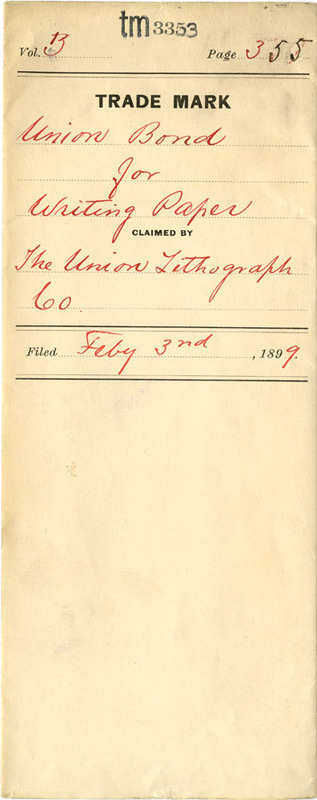 tm 3353
Vol. B Page 355
TRADE MARK
Union Bond
for
Writing Paper
CLAIMED BY
The Union Lithograph
Co
Filed Feby 3rd, 1899.